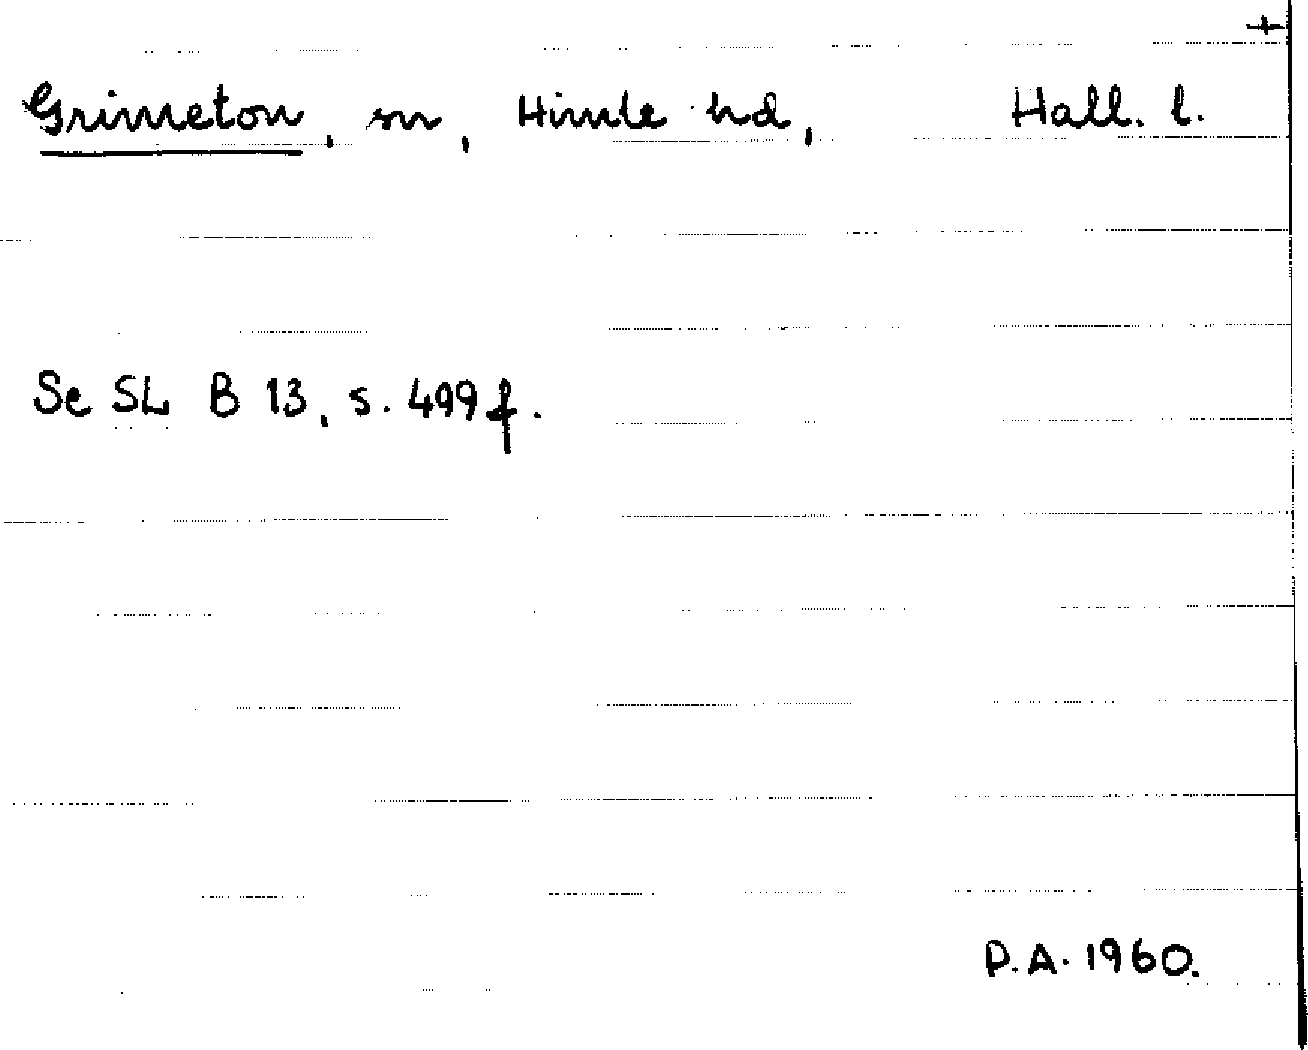 +
Grimeton, sn, Himle hd, Hall. l.
Se SL B 13, s. 499 f.
P.A. 1960.